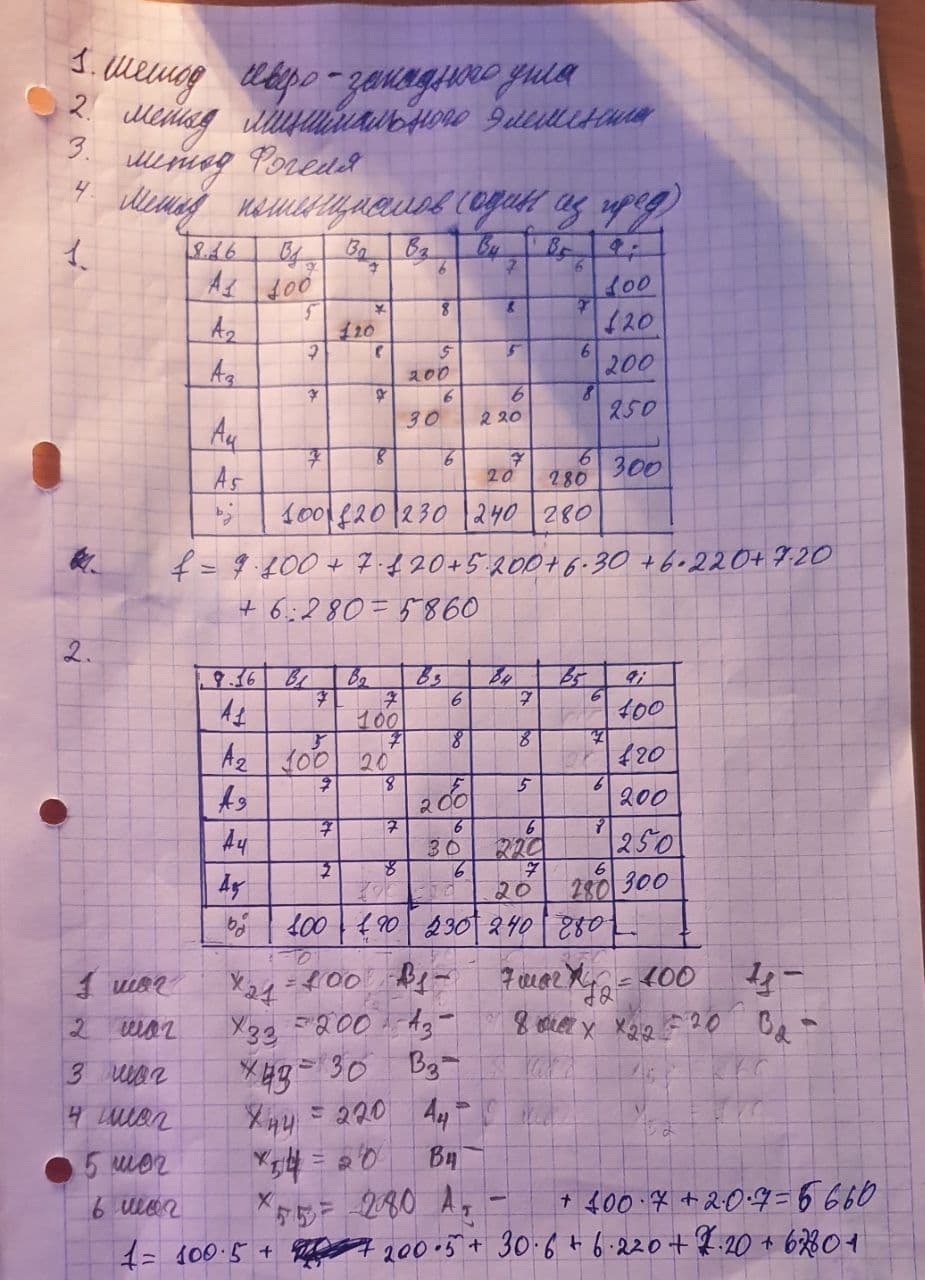 1. метод северо-западного угла
2. метод минимального элемента
3. метод Фогеля
4. Метод потенциалов (один из пред)
1.
8.16 B1 B2 B3 B4 B5 ai
A1 7 100 7 6 7 6 100
A2 5 7 120 8 8 7 120
A3 7 8 5 200 5 6 200
A4 7 7 6 30 6 220 8 250
A5 7 8 6 7 20 6 280 300
bj 100 120 230 240 280
f = 7·100 + 7·120+5·200+6·30 +6·220+7·20
+ 6·280 = 5860
2.
8.16 B1 B2 B3 B4 B5 ai
A1 7 7 100 6 7 6 100
A2 5 100 7 20 8 8 7 120
A3 7 8 5 200 5 6 200
A4 7 7 6 30 6 220 8 250
A5 7 8 6 7 20 6 280 300
bj 100 120 230 240 280
1 шаг x21 = 100 B1 - 7 шаг x12 = 100 A1 -
2 шаг x33 = 200 A3 - 8 шаг x22 = 20 B2 -
3 шаг x43 = 30 B3 -
4 шаг x44 = 220 A4 -
5 шаг x54 = 20 B4 -
6 шаг x55 = 280 A5 - + 100·7 + 20·7 = 5660
f = 100·5 + + 200·5 + 30·6 + 6·220 + 7·20 + 6·280 +